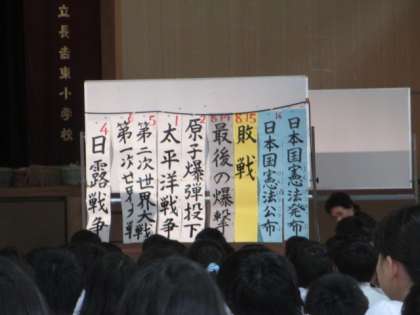 立長杏東小学校
日本国憲法発布
日本国憲法公布
8.15
敗戦
8.14
最後の爆撃
2
原子爆弾投下
1
太平洋戦争
5
第二次世界大戦
第一次世界
4
日露戦争